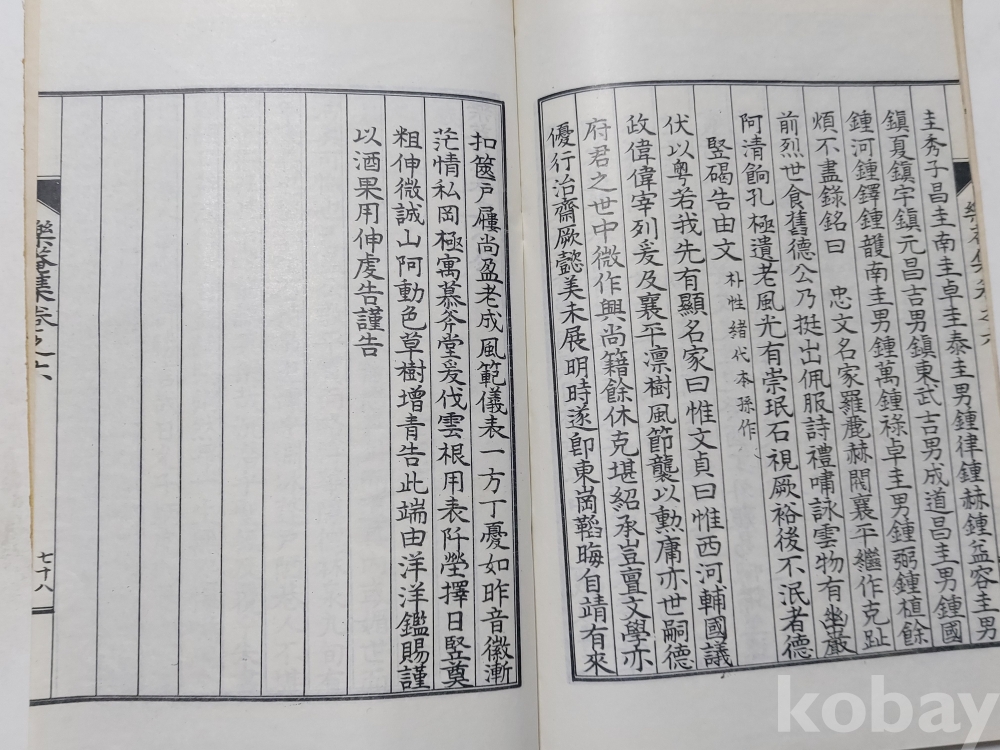 圭秀子昌圭南圭卓圭泰圭男鍾律鍾赫鍾益容圭男
鎭夏鎭宇鎭元昌吉男鎭東武吉男成道昌圭男鍾國
鍾河鍾鐸鍾頀南圭男鍾萬鍾祿卓圭男鍾弼鍾植餘
煩不盡錄銘曰 忠文名家羅麗赫閥襄平繼作克趾
前烈世食舊德公乃挺出佩服詩禮嘯詠雲物有幽巖
阿清餉孔極遺老風光有崇珉石視厥裕後不泯者德
竪碣告由文 朴性緖代本孫作
伏以粤若我先有顯名家曰惟文貞曰惟西河輔國議
政偉偉宰列爰及襄平凛樹風節襲以勲庸亦世嗣德
府君之世中微作興尚籍餘休克堪紹承豈亶文學亦
優行治齋厥懿美未展明時遂卽東崗韜晦自靖有來
扣篋戶屨尚盈老成風範儀表一方丁憂如昨音徽漸
茫情私罔極寓慕斧堂爰伐雲根用表阡塋擇日竪奠
粗伸微誠山阿動色草樹增青告此端由洋洋鑑賜謹
以酒果用伸虔告謹告
樂菴集卷之六
七十八
樂菴集卷之六
kobay